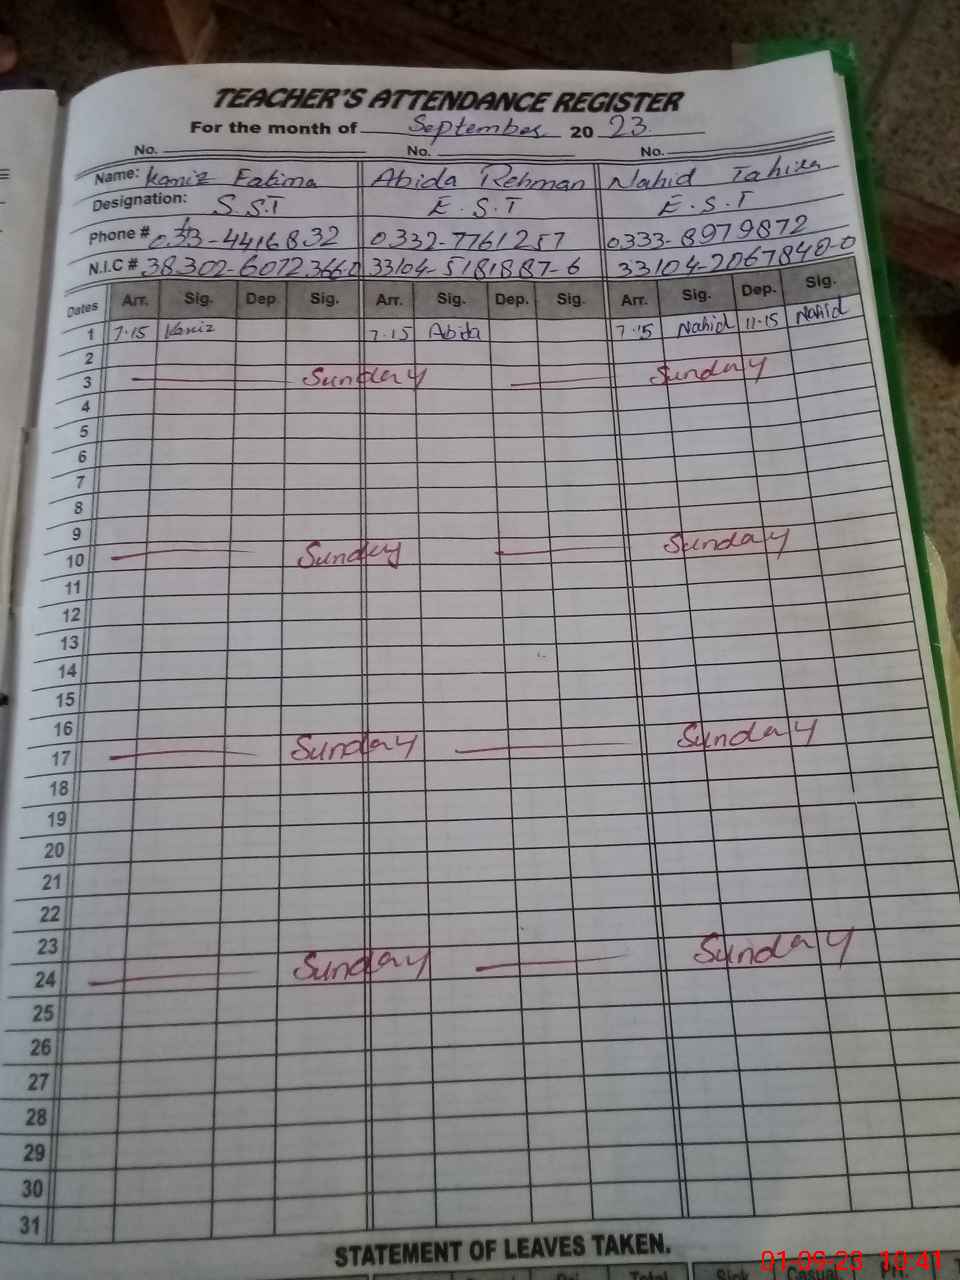 TEACHER'S ATTENDANCE REGISTER
For the month of September 2023
No. No. No.
Name: Kaniz Fatima Abida Rehman Nahid Tahira
Designation: S.S.T E.S.T E.S.T
Phone # 0332-7761257 0333-8979872
N.I.C # 38302-6072366-0 33104-5181887-6 33104-2067840-0
Dates Arr. Sig. Dep. Sig. Arr. Sig. Dep. Sig. Arr. Sig. Dep. Sig.
1 7.15 Kaniz 7.15 Abida 7.15 Nahid 11.15 Nahid
2
3 Sunday Sunday
4
5
6
7
8
9
10 Sunday Sunday
11
12
13
14
15
16
17 Sunday Sunday
18
19
20
21
22
23
24 Sunday Sunday
25
26
27
28
29
30
31
STATEMENT OF LEAVES TAKEN.
Total Sick
01-09-23 10:41